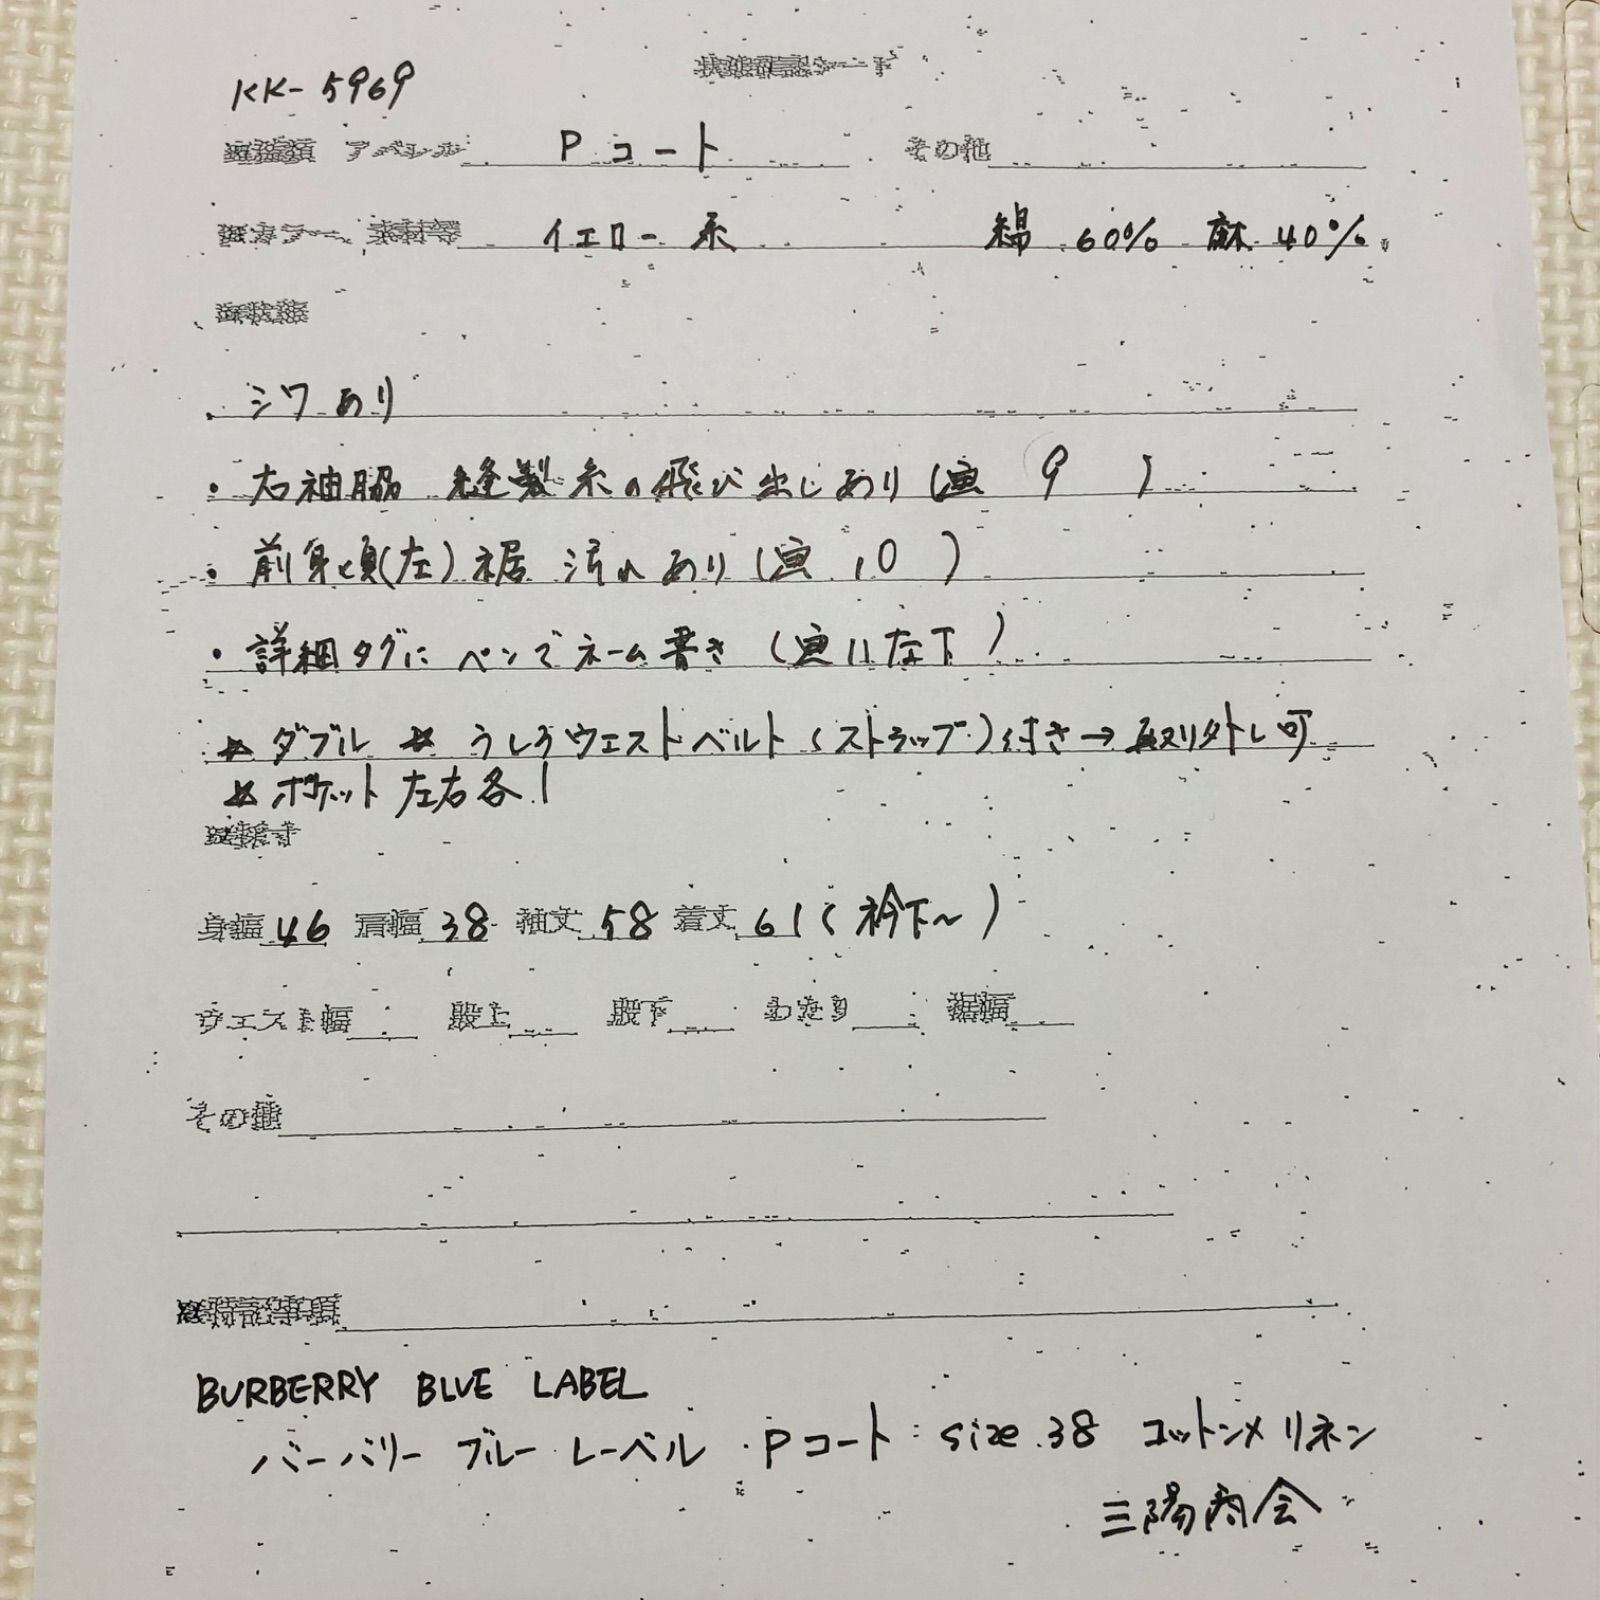 KK-5969
状態確認シート
アパレル Pコート その他
カラー、素材等 イエロー系 綿 60% 麻 40%
シワあり
・右袖脇 縫製糸の飛び出しあり(画 9 )
・前身頃(左)裾 汚れあり(画 10 )
・詳細タグに ペンでネーム書き (画11左下)
☆ダブル ☆ うしろウエストベルト(ストラップ)付き→取り外し可
☆ポケット 左右各1
身幅 46 肩幅 38 袖丈 58 着丈 61(衿下〜)
ウエスト幅 股上 股下 わたり 裾幅
その他
※特記事項
BURBERRY BLUE LABEL
バーバリー ブルーレーベル Pコート size 38 コットン×リネン
三陽商会